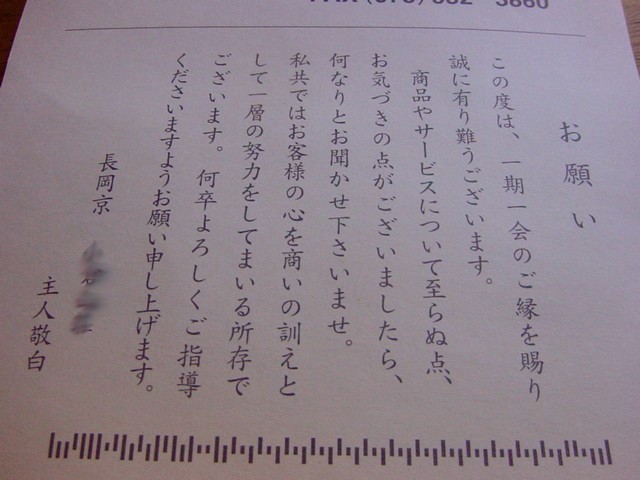 FAX (075) 882-3660
お願い
この度は、一期一会のご縁を賜り
誠に有り難うございます。
商品やサービスについて至らぬ点、
お気づきの点がございましたら、
何なりとお聞かせ下さいませ。
私共ではお客様の心を商いの訓えと
して一層の努力をしてまいる所存で
ございます。何卒よろしくご指導
くださいますようお願い申し上げます。
長岡京
主人敬白